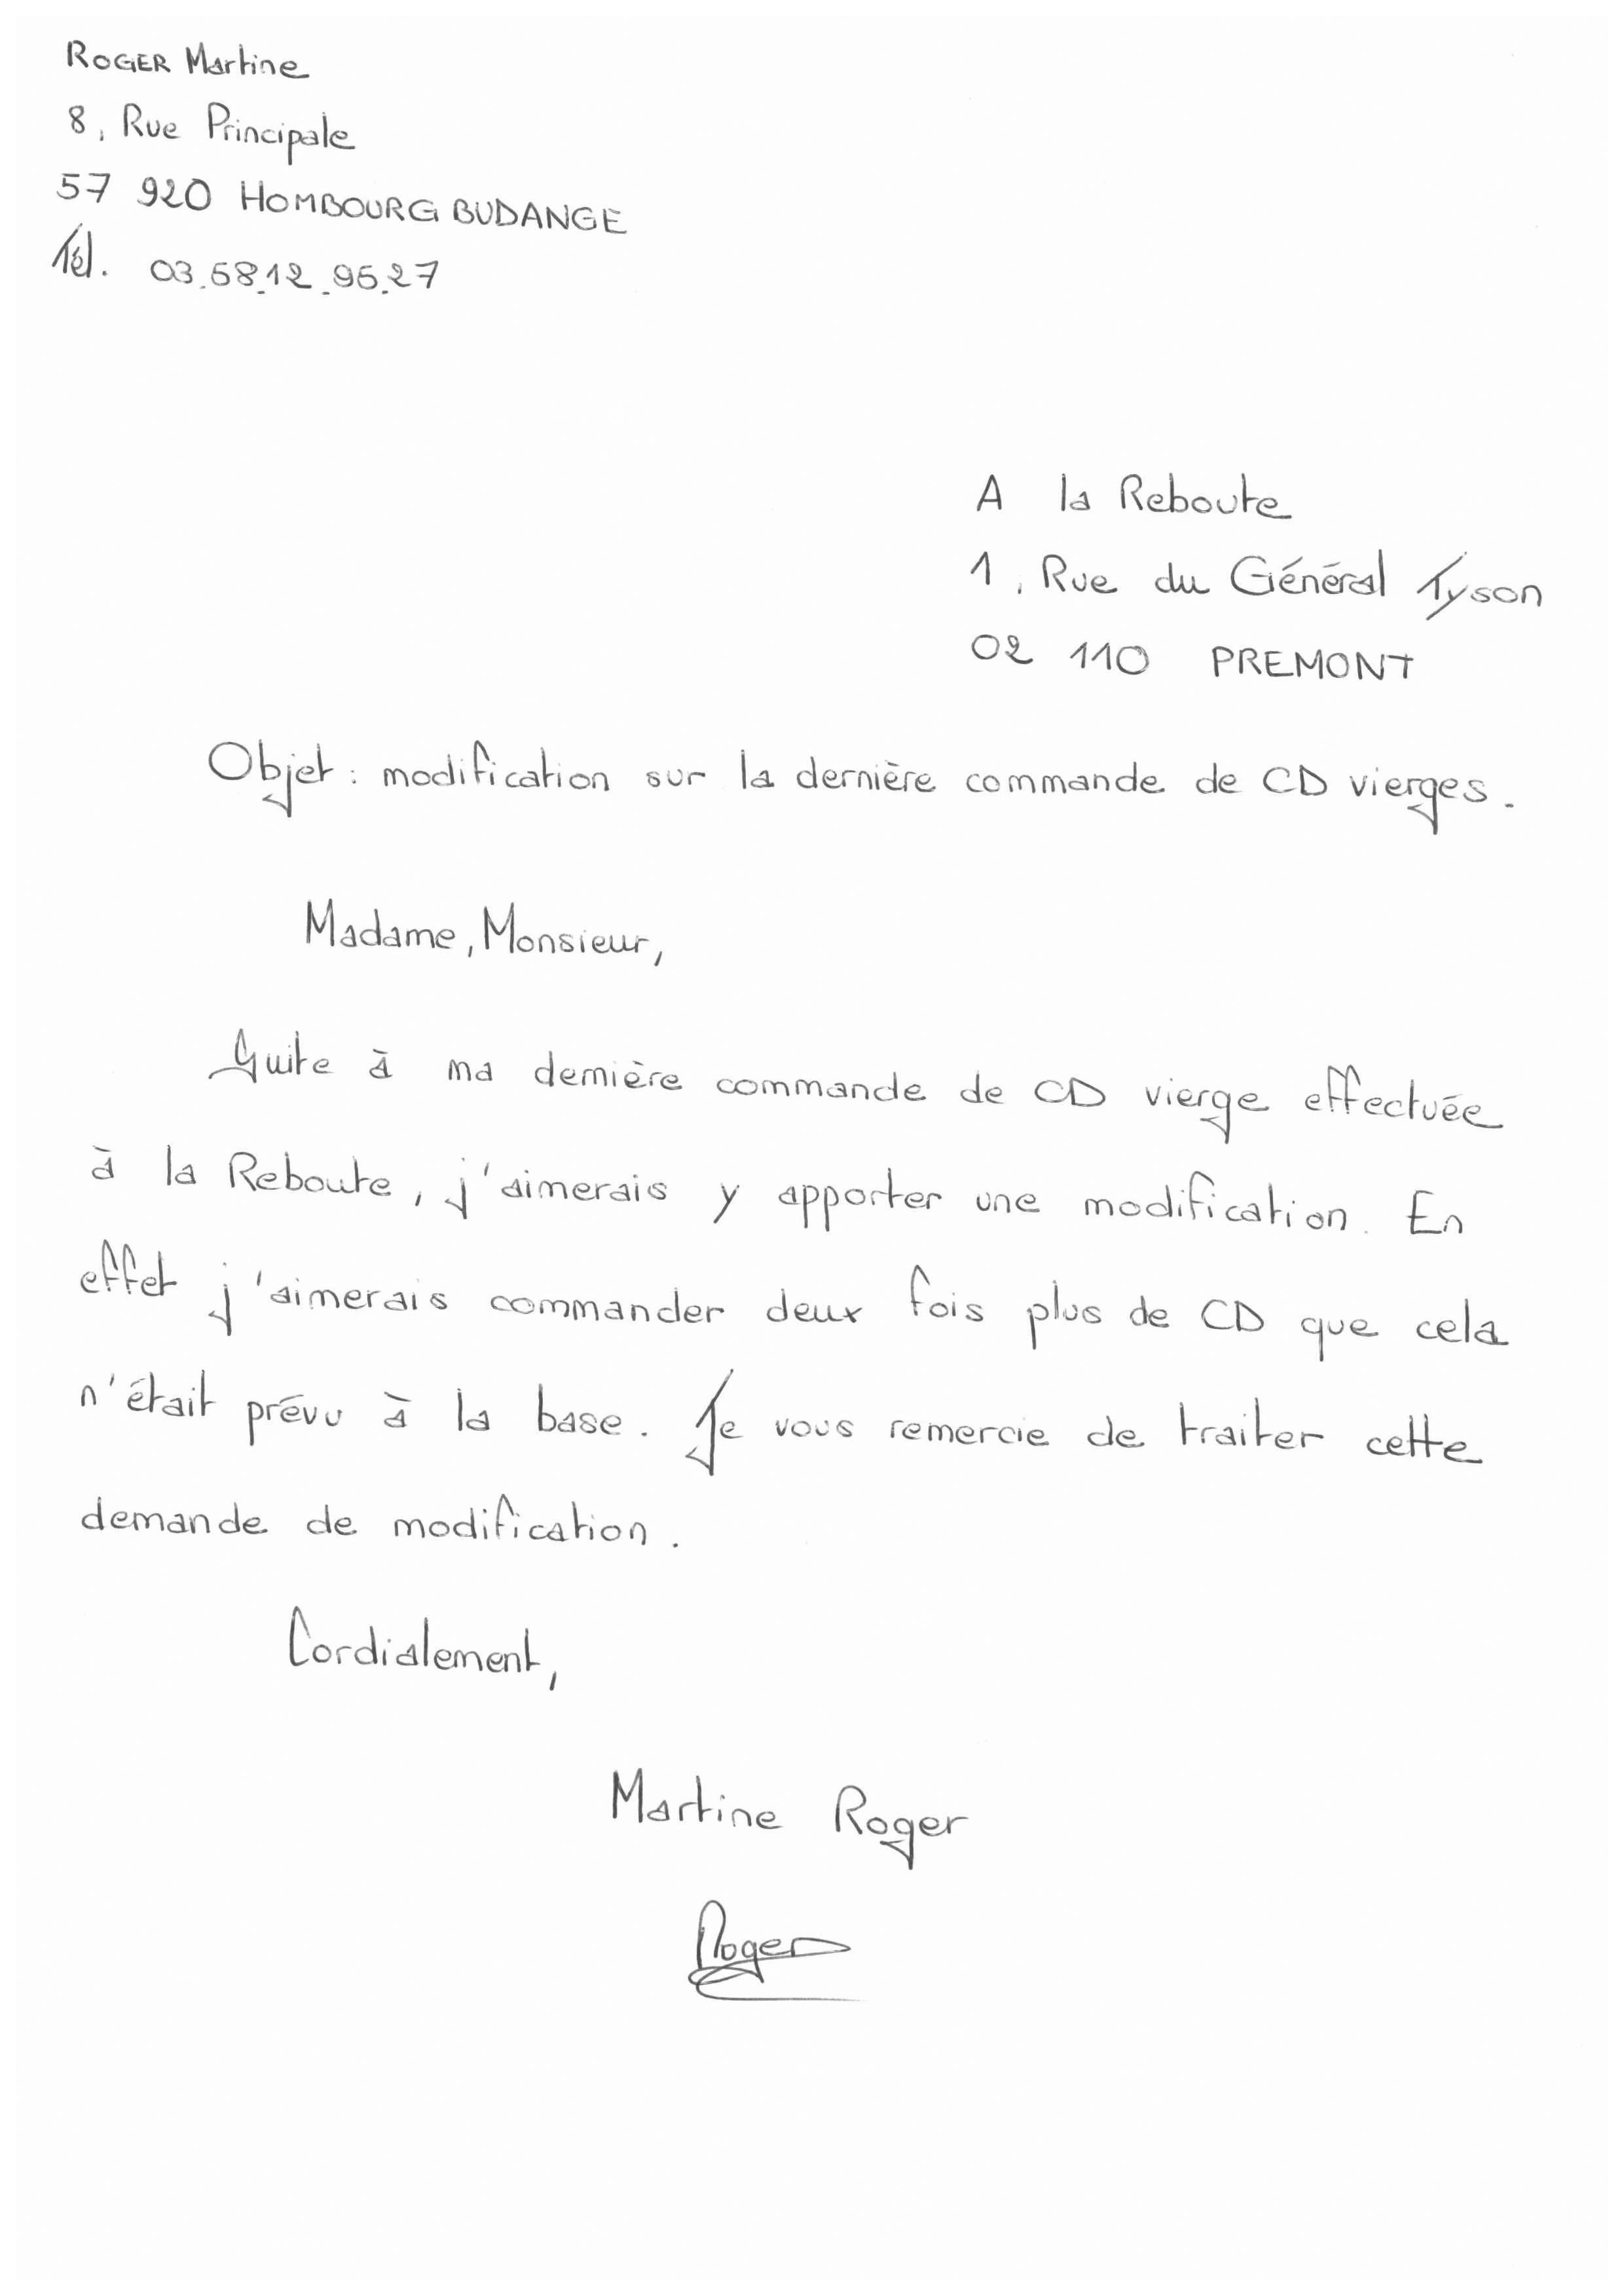 ROGER Martine
8, Rue Principale
57 920 HOMBOURG BUDANGE
Tél. 03.68.12.95.27
A la Reboute
1, Rue du Général Tyson
02 110 PREMONT
Objet : modification sur la dernière commande de CD vierges.
Madame, Monsieur,
Suite à ma dernière commande de CD vierge effectuée
à la Reboute, j'aimerais y apporter une modification. En
effet j'aimerais commander deux fois plus de CD que cela
n'était prévu à la base. Je vous remercie de traiter cette
demande de modification.
Cordialement,
Martine Roger
Roger